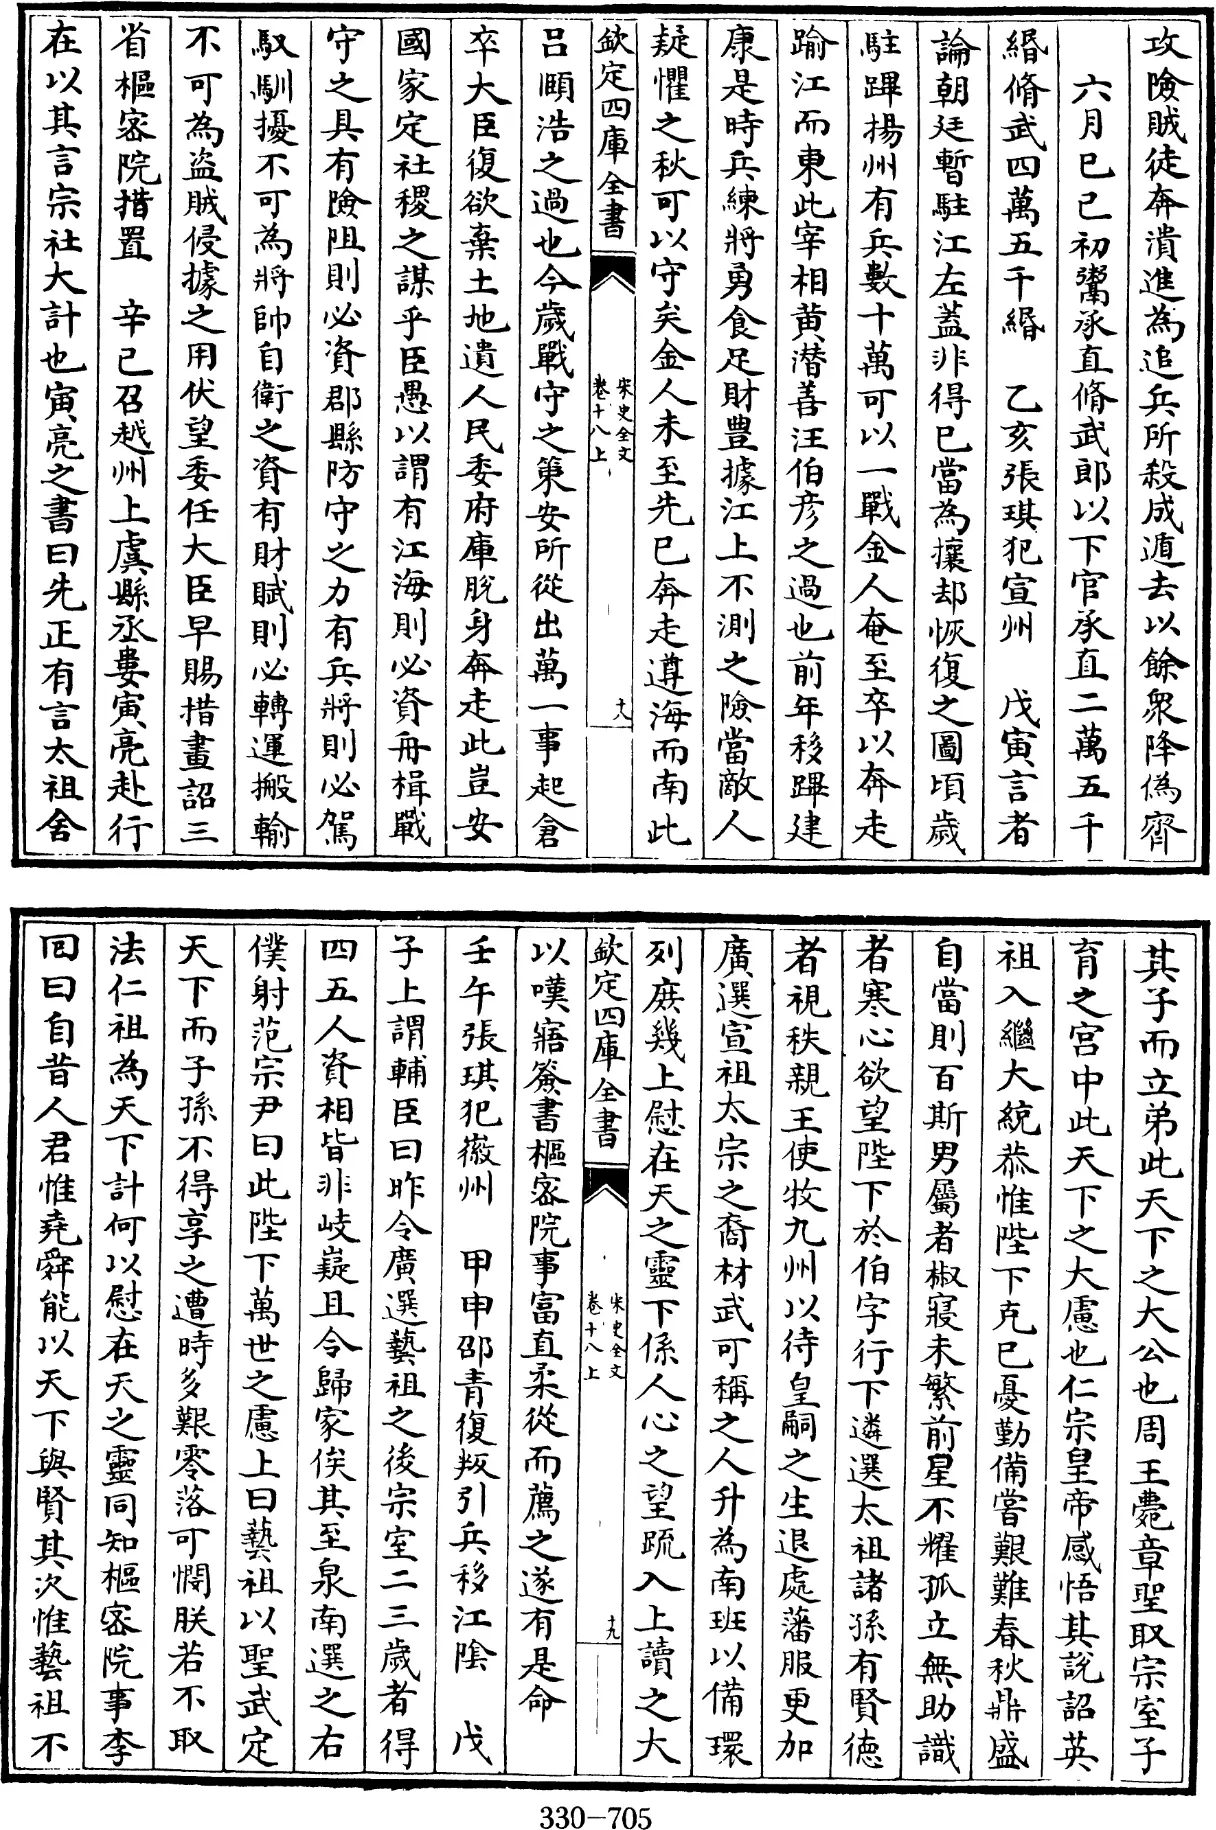 攻險賊徒奔潰進為追兵所殺成遁去以餘衆降偽齊
六月已已初鬻承直脩武郎以下官承直二萬五千
緡脩武四萬五千緡　乙亥張琪犯宣州　戊寅言者
論朝廷暫駐江左蓋非得已當為攘却恢復之圖頃歲
駐蹕揚州有兵數十萬可以一戰金人奄至卒以奔走
踰江而東此宰相黄潛善汪伯彦之過也前年移蹕建
康是時兵練將勇食足財豐據江上不測之險當敵人
疑懼之秋可以守矣金人未至先已奔走遵海而南此
欽定四庫全書
宋史全文
卷十八上
十八
吕頤浩之過也今歲戰守之策安所從出萬一事起倉
卒大臣復欲棄土地遺人民委府庫脱身奔走此豈安
國家定社稷之謀乎臣愚以謂有江海則必資舟楫戰
守之具有險阻則必資郡縣防守之力有兵將則必駕
馭馴擾不可為將帥自衛之資有財賦則必轉運搬輸
不可為盗賊侵據之用伏望委任大臣早賜措畫詔三
省樞密院措置　辛已召越州上虞縣丞婁寅亮赴行
在以其言宗社大計也寅亮之書曰先正有言太祖舍
其子而立弟此天下之大公也周王薨章聖取宗室子
育之宫中此天下之大慮也仁宗皇帝感悟其説詔英
祖入繼大統恭惟陛下克已憂勤備嘗艱難春秋鼎盛
自當則百斯男屬者椒寢未繁前星不耀孤立無助識
者寒心欲望陛下於伯字行下遴選太祖諸孫有賢德
者視秩親王使牧九州以待皇嗣之生退處藩服更加
廣選宣祖太宗之裔材武可稱之人升為南班以備環
列庶幾上慰在天之靈下係人心之望疏入上讀之大
欽定四庫全書
宋史全文
卷十八上
十九
以嘆寤簽書樞密院事富直柔從而薦之遂有是命
壬午張琪犯徽州　甲申邵青復叛引兵移江陰　戊
子上謂輔臣曰昨令廣選藝祖之後宗室二三歲者得
四五人資相皆非岐嶷且令歸家俟其至泉南選之右
僕射范宗尹曰此陛下萬世之慮上曰藝祖以聖武定
天下而子孫不得享之遭時多艱零落可憫朕若不取
法仁祖為天下計何以慰在天之靈同知樞密院事李
囘曰自昔人君惟堯舜能以天下與賢其次惟藝祖不
330-705